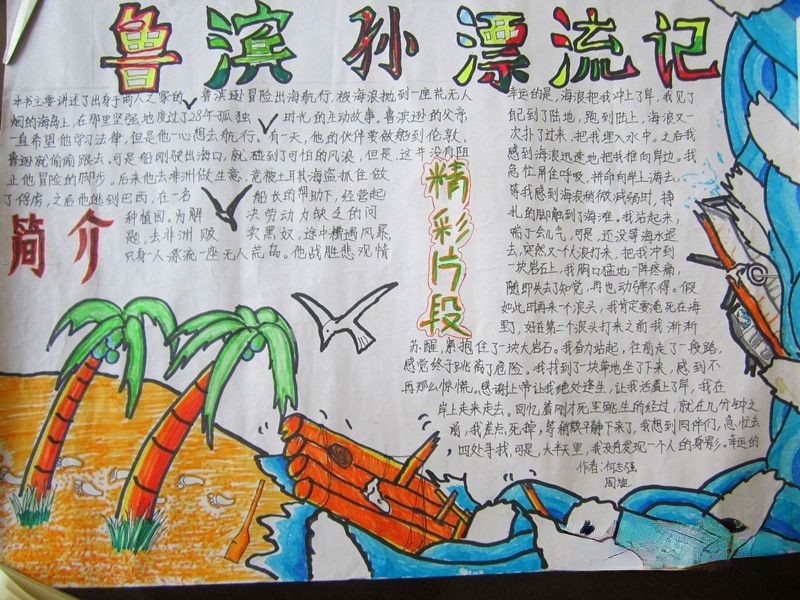 鲁滨孙漂流记
本书主要讲述了出身于商人之家的鲁滨逊冒险出海航行,被海浪抛到一座荒无人
烟的海岛上,在那里坚强地度过了28年孤独时光的生动故事,鲁滨孙的父亲
一直希望他学习法律,但是他一心想去航行。有一天,他的伙伴要做船到伦敦,
鲁逊就偷偷跟去。可是船刚驶出海口,就碰到了可怕的风浪,但是,这并没有阻
止他冒险的脚步。后来他去非洲做生意,竟被土耳其海盗抓住做
了俘虏,之后他逃到巴西,在一名船长的帮助下,经营起
种植园,为解决劳动力缺乏的问
题,去非洲贩卖黑奴,途中遭遇风暴
只身一人漂流一座无人荒岛。他战胜悲观情
简介
精彩片段
幸运的是,海浪把我冲上了岸,我见了
自己到了陆地,跑到陆上,海浪又一
次扑了过来,把我埋入水中。之后我
感到海浪迅速地把我推向岸边。我
急忙屏住呼吸,拼命向岸上游去,
等我感到海浪稍微减弱时,挣
扎的脚触到了海滩,我站起来,
喘了会几气,可是,还没等海水退
去,突然又个大浪打来,把我冲到
一块岩石上,我胸口猛地一阵疼痛,
随即失去了知觉,再也动弹不得。假
如此时再来一个浪头,我肯定要淹死在海
里了,好在第一个浪头打来之前我渐渐
苏醒,紧抱住了一块大岩石。我奋力站起,往前走了一段路,
感觉终于逃离了危险。我找到了一块草地坐了下来,感到不
再那么惊慌。感谢上帝让我绝处逢生,让我活着上了岸,我在
岸上走来走去,回忆着刚才死里逃生的经过,就在几分钟之
前,我差点死掉,等稍微平静下来了,我想到同伴们,急忙去
四处寻找,可是,大半天里,我没有发现一个人的身影。幸运的
作者:何志强
周旋